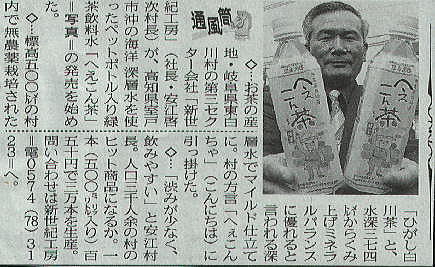 通風筒
◇…お茶の産
地・岐阜県東白
川村の第三セク
ター会社「新世
紀工房」(社長・安江啓
次村長)が、高知県室戸
市沖の海洋深層水を使
ったペットボトル入り緑
茶飲料水「へえこん茶」
=写真=の発売を始め
た。
◇…標高五〇〇㍍の村
内で無農薬栽培された
「ひがし白
川茶」と、
水深三七四
㍍からくみ
上げミネラ
ルバランス
に優れると
言われる深
層水でマイルド仕立て
に。村の方言「へえこん
ちゃ」(こんにちは)に
引っ掛けた。
◇…「渋みが少なく、
飲みやすい」と安江村
長。人口三千人余の村の
ヒット商品になるか。一
本(五〇〇㍉㍑入り)百
五十円で三万本を生産。
問い合わせは新世紀工房
=電0574(78)31
23=へ。
へえこん茶
へえこん茶